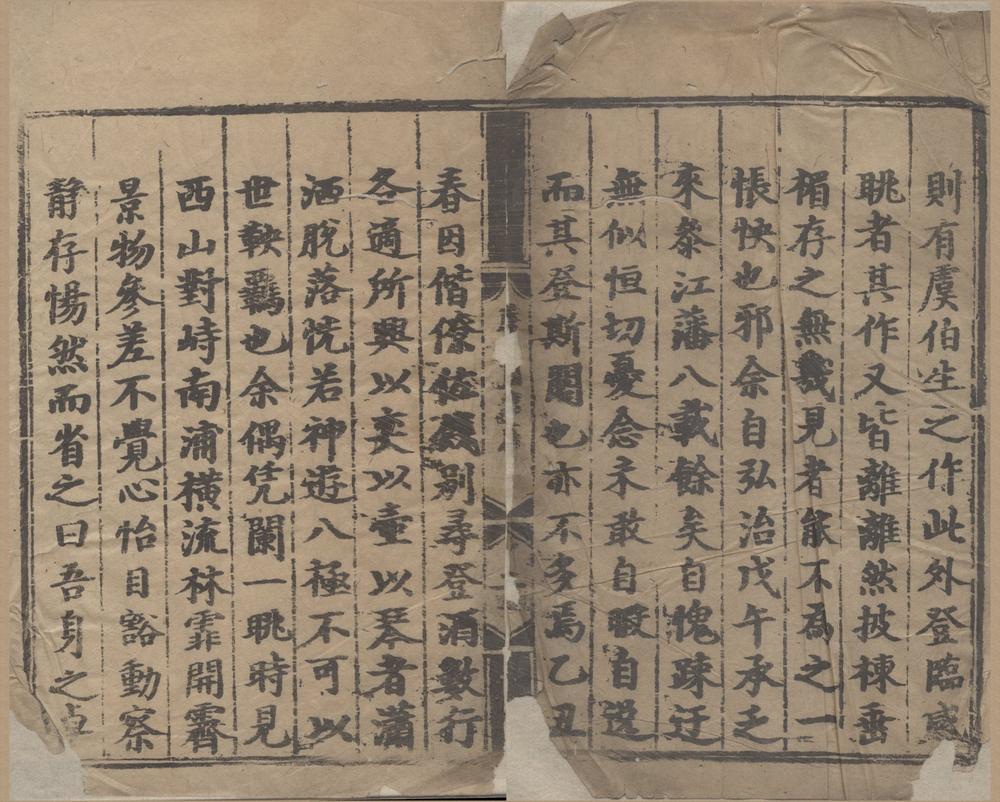 則有虞伯生之作此外登臨感
眺者其作又皆離離然披棟垂
楣存之無幾見者能不為之一
悵怏也邪余自弘治戊午承乏
來叅江藩八載餘矣自愧踈迂
無似恒切憂念未敢自暇自逸
而其登斯閣也亦不多焉乙丑
春因偕僚㑹別尋登酒數行
各適所興以奕以壷以琴者瀟
洒脫落恍若神遊八極不可以
世鞅覊也余偶凭闌一眺時見
西山對峙南浦橫流林霏開霽
景物參差不覺心怡目豁動察
靜存惕然而省之曰吾身之